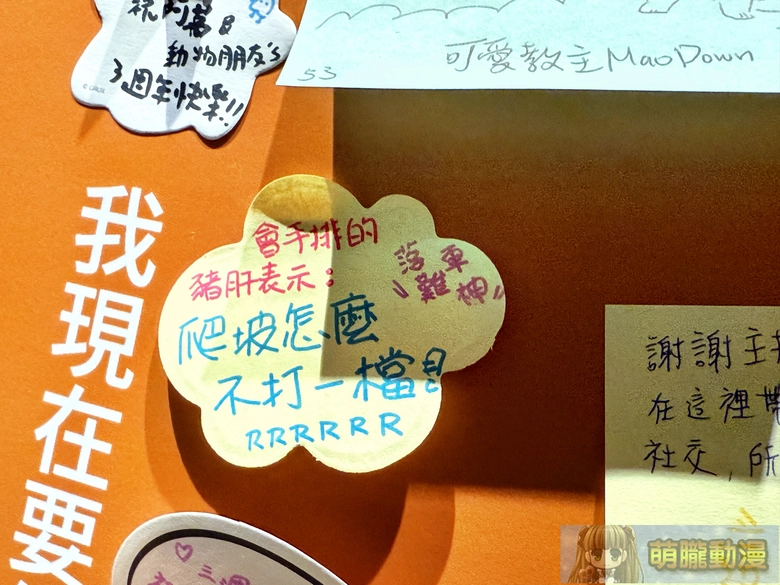 祝阿萬&
動物朋友's
3週年快樂!!
53
可愛教主MaoDown
我現在要
會手排的
豬肝表示:
落車
難神
爬坡怎麼
不打一檔
RRRRRR
謝謝主
在這裡帶
社交,所
三週
萌朧動漫